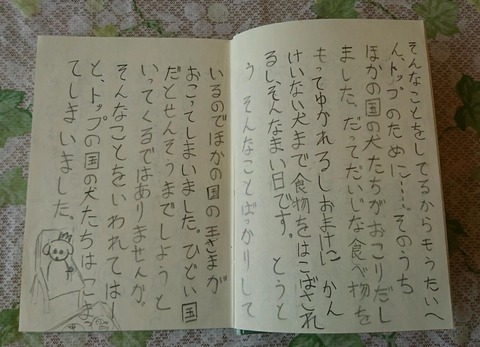 そんなことをしてるからもうたいへ
ん、トップのために……。そのうち
ほかの国の犬たちがおこりだし
ました。だってだいじな食べ物を
もってゆかれるしおまけに かん
けいない犬まで食物をはこばされ
るし、そんなまい日です。 とうと
う そんなことばっかりして
いるのでほかの国の王さまが
おこってしまいました。ひどい国
だとせんそうまでしようと
いってくるではありませんか。
そんなことをいわれてはー
と、トップの国の犬たちはこま
てしまいました。